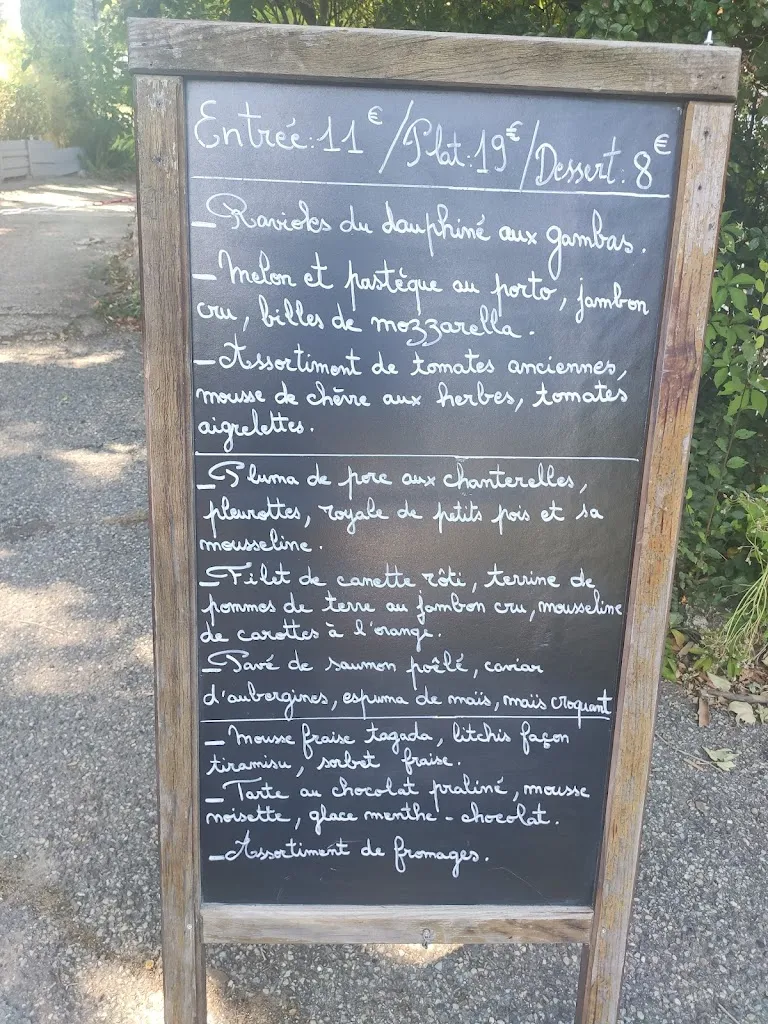 Entrée: 11€ / Plat: 19€ / Dessert: 8€
- Ravioles du dauphiné aux gambas.
- Melon et pastèque au porto, jambon
cru, billes de mozzarella.
- Assortiment de tomates anciennes,
mousse de chèvre aux herbes, tomates
aigrelettes.
- Pluma de porc aux chanterelles,
pleurottes, royale de petits pois et sa
mousseline.
- Filet de canette rôti, terrine de
pommes de terre au jambon cru, mousseline
de carottes à l'orange.
- Pavé de saumon poêlé, caviar
d'aubergines, espuma de maïs, maïs croquant
- Mousse fraise tagada, litchis façon
tiramisu, sorbet fraise.
- Tarte au chocolat praliné, mousse
noisette, glace menthe - chocolat.
- Assortiment de fromages.